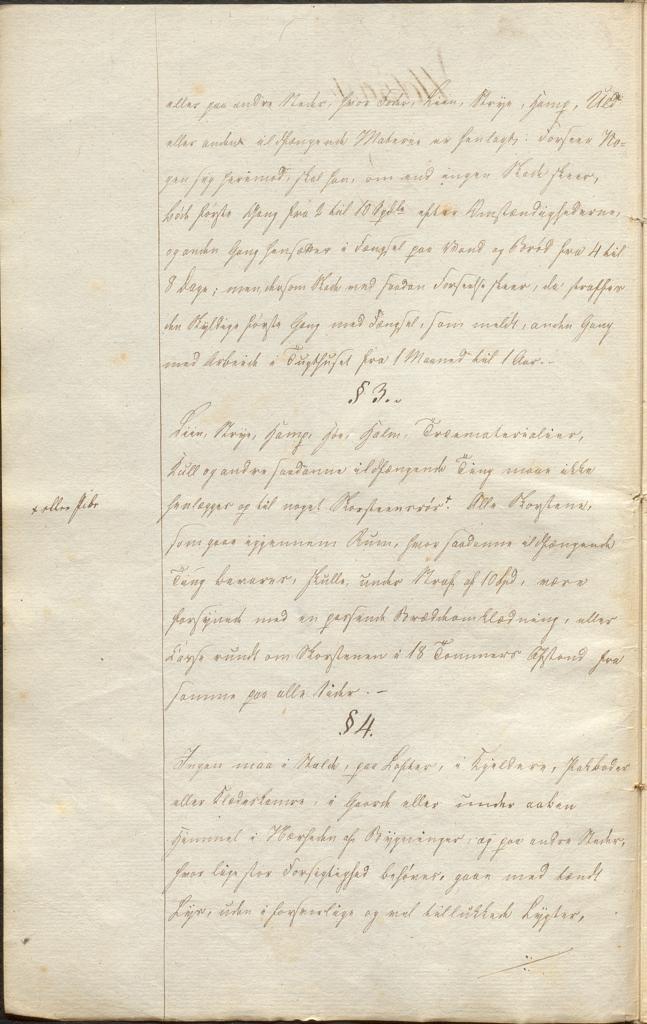 eller paa andre Steder, hvor Foder, Liin, Strye, Hamp, Uld
eller andet ildfængende Materie er henlagt. Forseer No-
gen sig herimod, skal han, om end ingen Skade skeer,
bøde første Gang fra 2 til 10 Spdlr efter Omstændighederne,
og anden Gang hensættes i Fængsel paa Vand og Brød fra 4 til
8 Dage; men dersom Skade ved saadan Forseelse skeer, da straffes
den Skyldige første Gang med Fængsel, som meldt, anden Gang
med Arbeide i Tugthuset fra 1 Maaned til 1 Aar.-
§ 3.
Liin, Strye, Hamp, Høe, Halm, Træmaterialier,
Kull og andre saadanne ildfængende Ting maae ikke
henlægges op til noget Skorsteensrør+. Alle Skorstene,
+ eller Pibe
som gaae igjennem Rum, hvor saadanne ildfængende
Ting bevares, skulle, under Straf af 10 Spd, være
forsynede med en passende Bræddeomklædning, eller
Karse rundt om Skorstenen i 18 Tommers Afstand fra
samme paa alle Sider.-
§ 4.
Ingen maa i Stalde, paa Lofter, i Kjeldere, Pakboder
eller Klædeskamre, i Gaarde eller under aaben
Himmel i Nærheden af Bygninger, og paa andre Steder,
hvor lige stor Forsigtighed behøves, gaae med tændt
Lys, uden i forsvarlige og vel tillukkede Lygter,